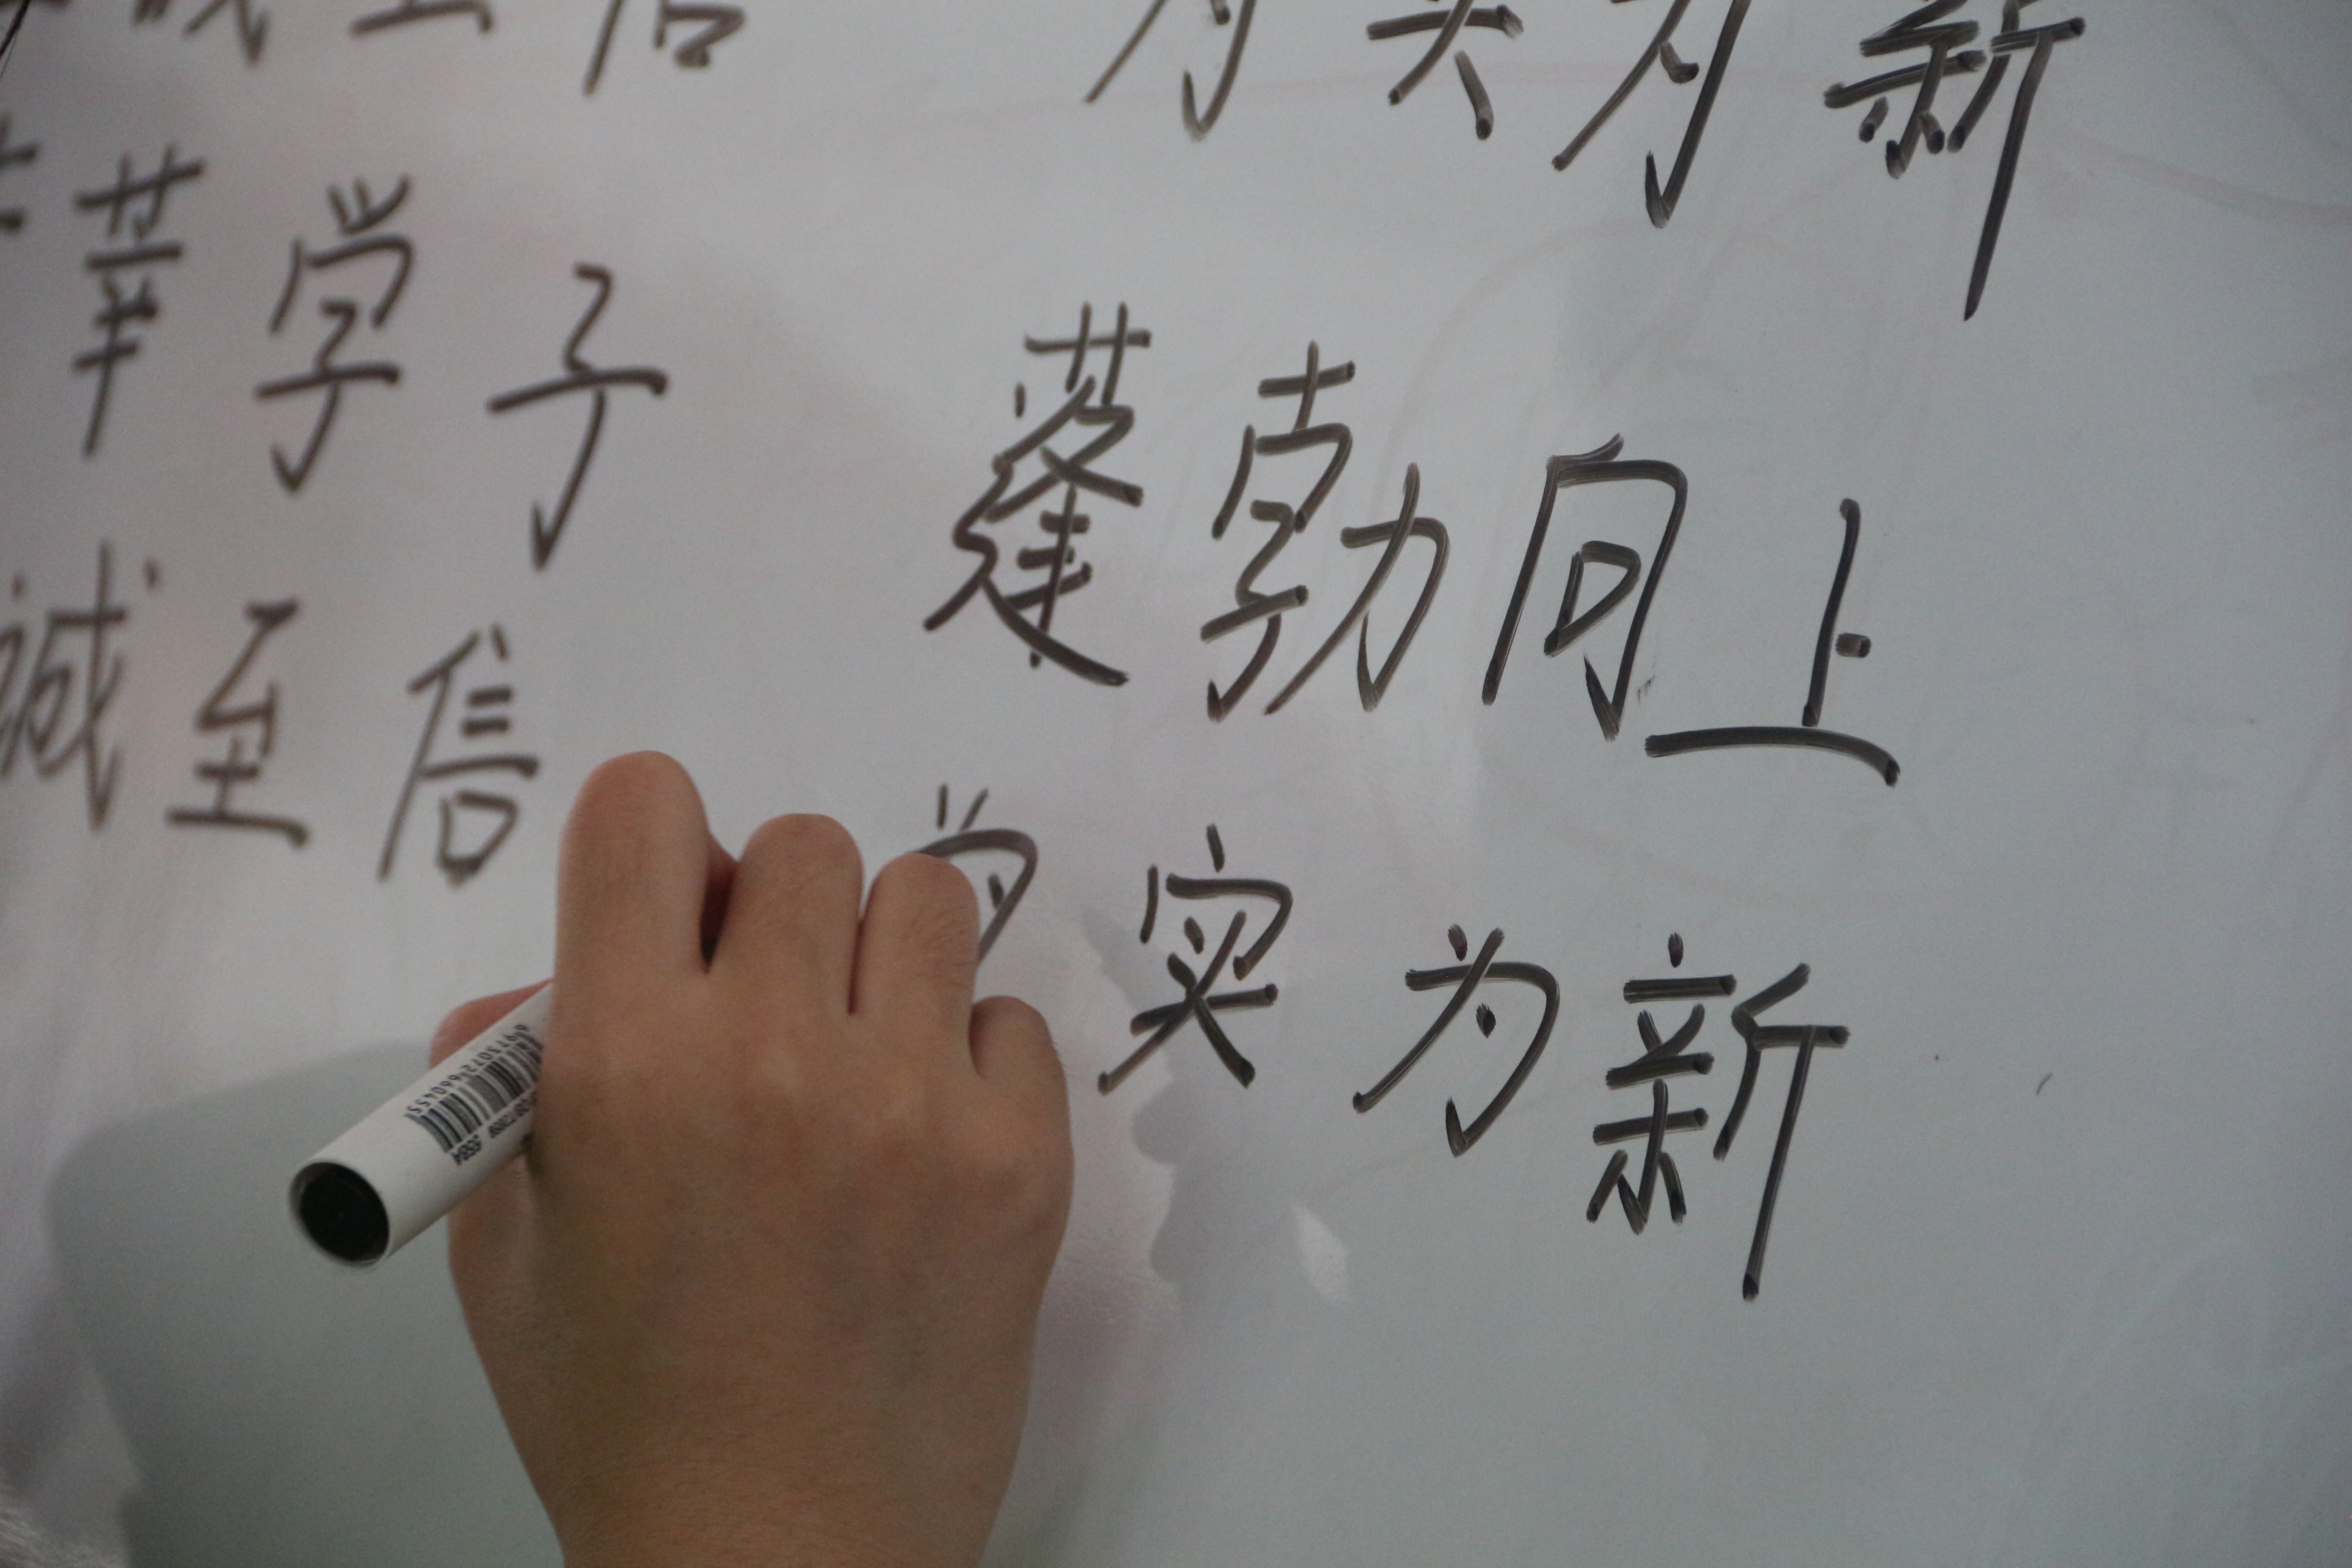 诚至信 为实为新
莘学子 蓬勃向上
诚至信 为实为新